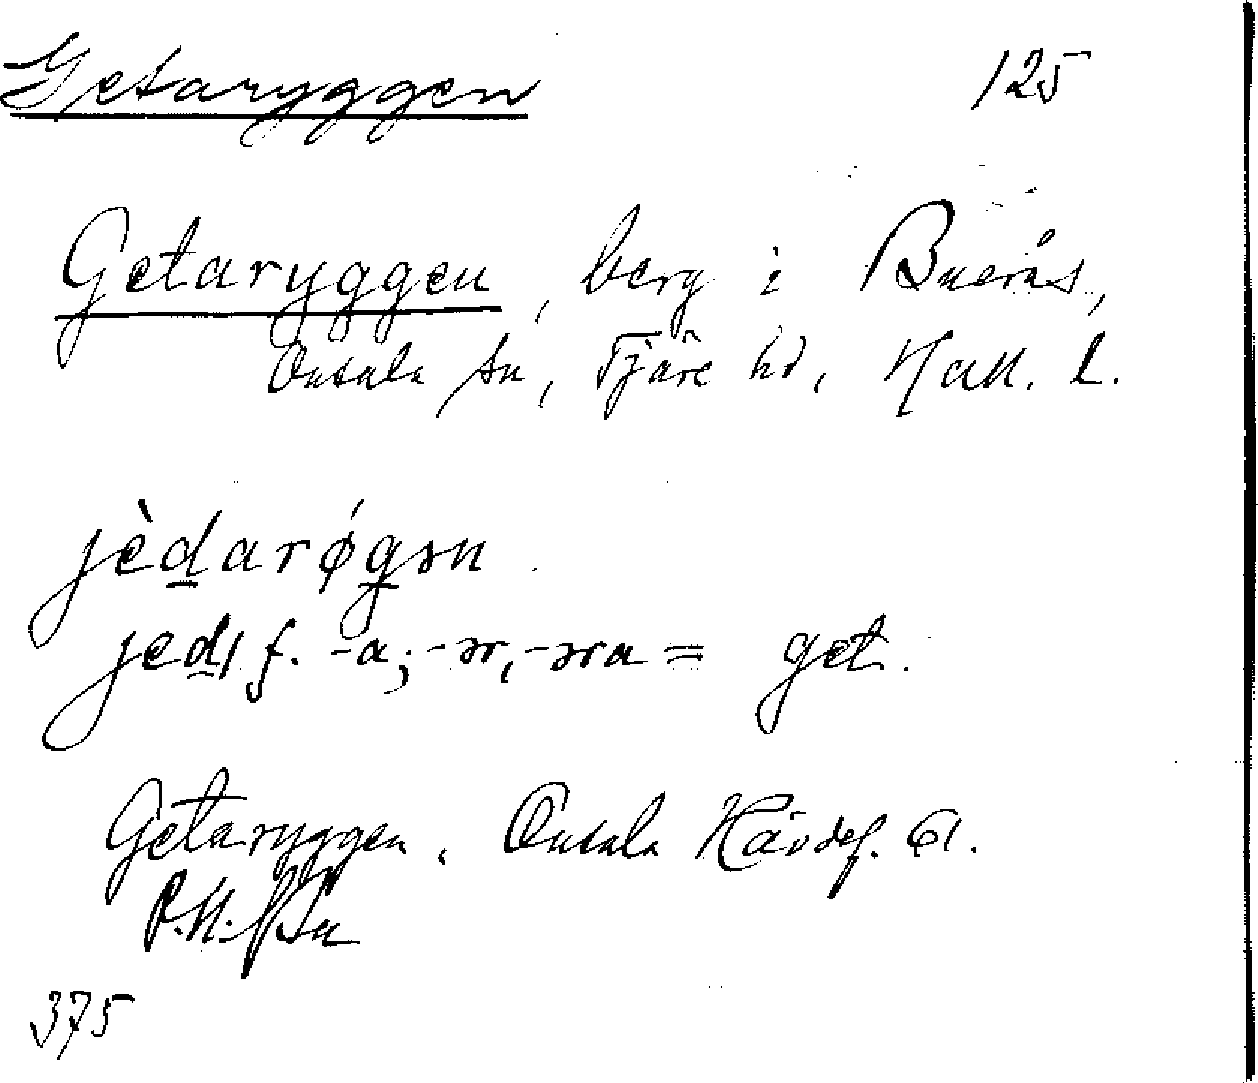 Getaryggen 125
Getaryggen, berg i Buerås,
Onsala sn, Fjäre hd, Hall. l.
jèd̲arǿg̲ən
jed̲, f. -a; -ər, -əra = get.
Getaryggen. Onsala Hävdef. 61.
375